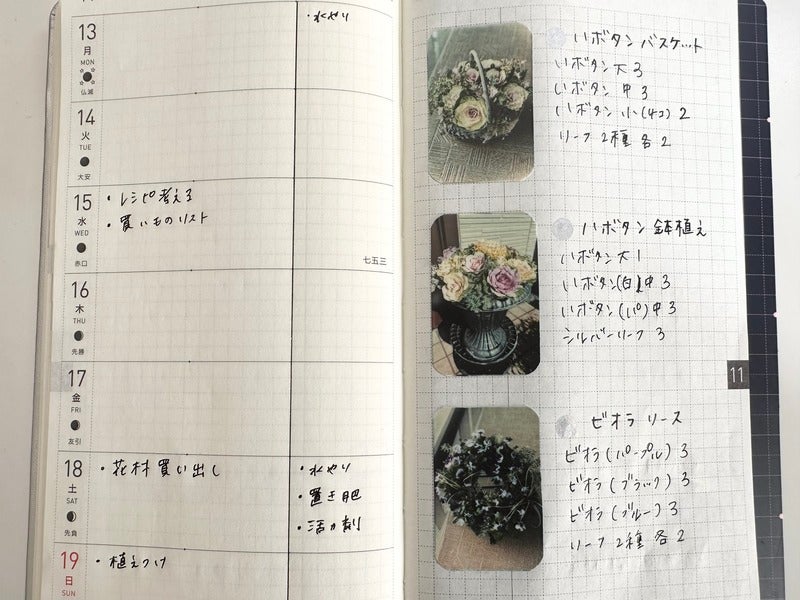 13
月
MON
仏滅
・水やり
14
火
TUE
大安
15
水
WED
赤口
・レシピ考える
・買いものリスト
七五三
16
木
THU
先勝
17
金
FRI
友引
18
土
SAT
先負
・花材買い出し
・水やり
・置き肥
・活力剤
19
日
SUN
・植えつけ
ハボタン バスケット
ハボタン 大 3
ハボタン 中 3
ハボタン 小(4コ) 2
リーフ 2種 各 2
ハボタン 鉢植え
ハボタン 大 1
ハボタン(白)中 3
ハボタン(パ)中 3
シルバーリーフ 3
ビオラ リース
ビオラ(パープル) 3
ビオラ(ブラック) 3
ビオラ(ブルー) 3
リーフ 2種 各 2
11